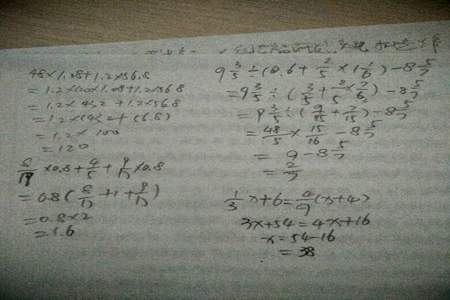 48×1.08+1.2×56.8
=1.2×40×1.08+1.2×56.8
=1.2×43.2+1.2×56.8
=1.2×(43.2+56.8)
=1.2×100
=120
×0.8+4/5+ ×0.8
=0.8( +1+ )
=0.8×2
=1.6
9 3/5÷(0.6+2/5×1 1/6)-8 5/7
=9 3/5÷(3/5+2/5×7/6)-8 5/7
=9 3/5÷(9/15+7/15)-8 5/7
=48/5×15/16-8 5/7
=9-8 5/7
=2/7
1/3x+6=4/9(x+4)
3x+54=4x+16
x=54-16
=38